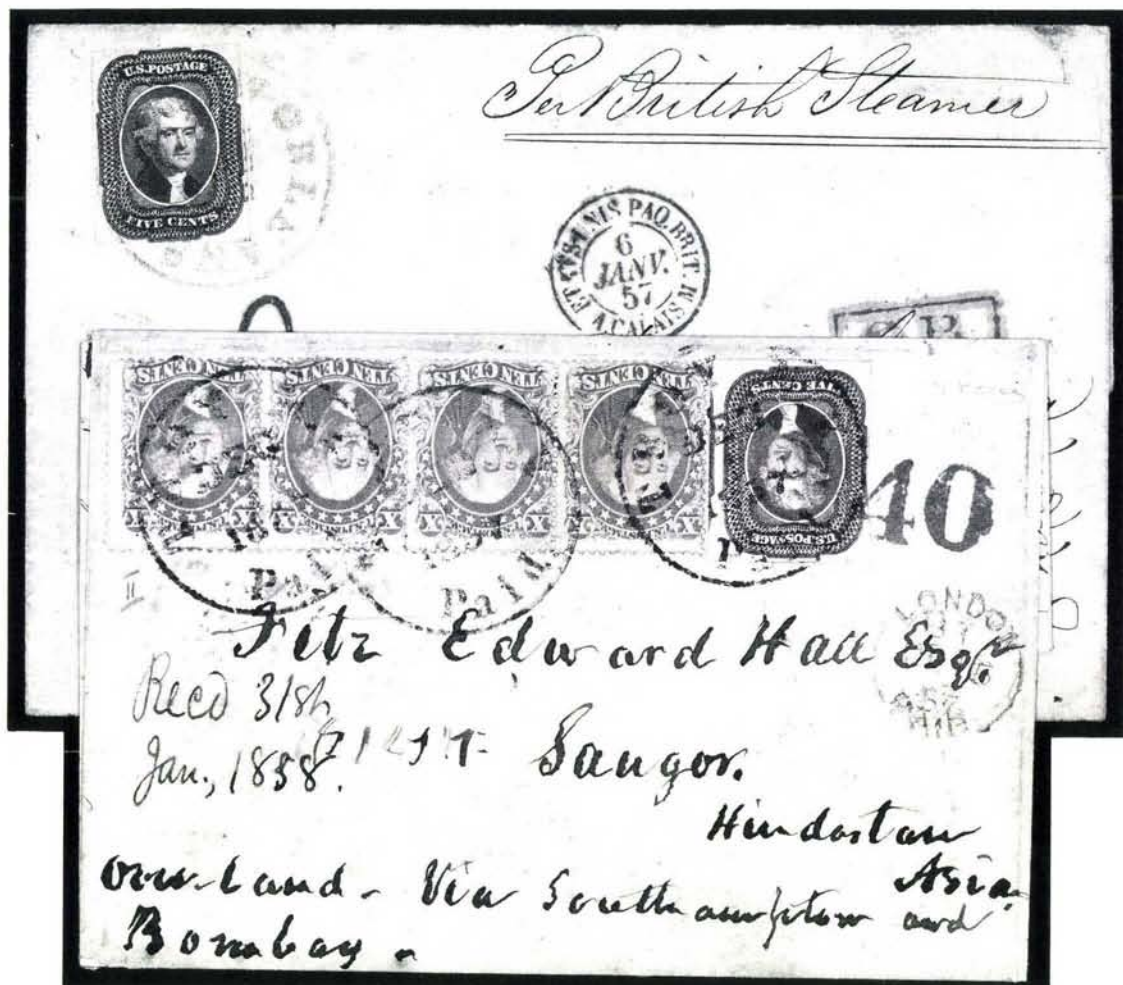 U.S. POSTAGE
FIVE CENTS
Per British Steamer
ORLEANS
ET. UNIS PAQ. BRIT. A CALAIS
6
JANV.
57
TEN CENTS TEN CENTS TEN CENTS TEN CENTS
FIVE CENTS
U.S. POSTAGE
40
Paid Paid
LONDON
57
Fitz Edward Hall Esqr.
Recd 31st
Jan., 1858.
Saugor.
Hindostan
Asia.
Over-land - Via Southampton and
Bombay -